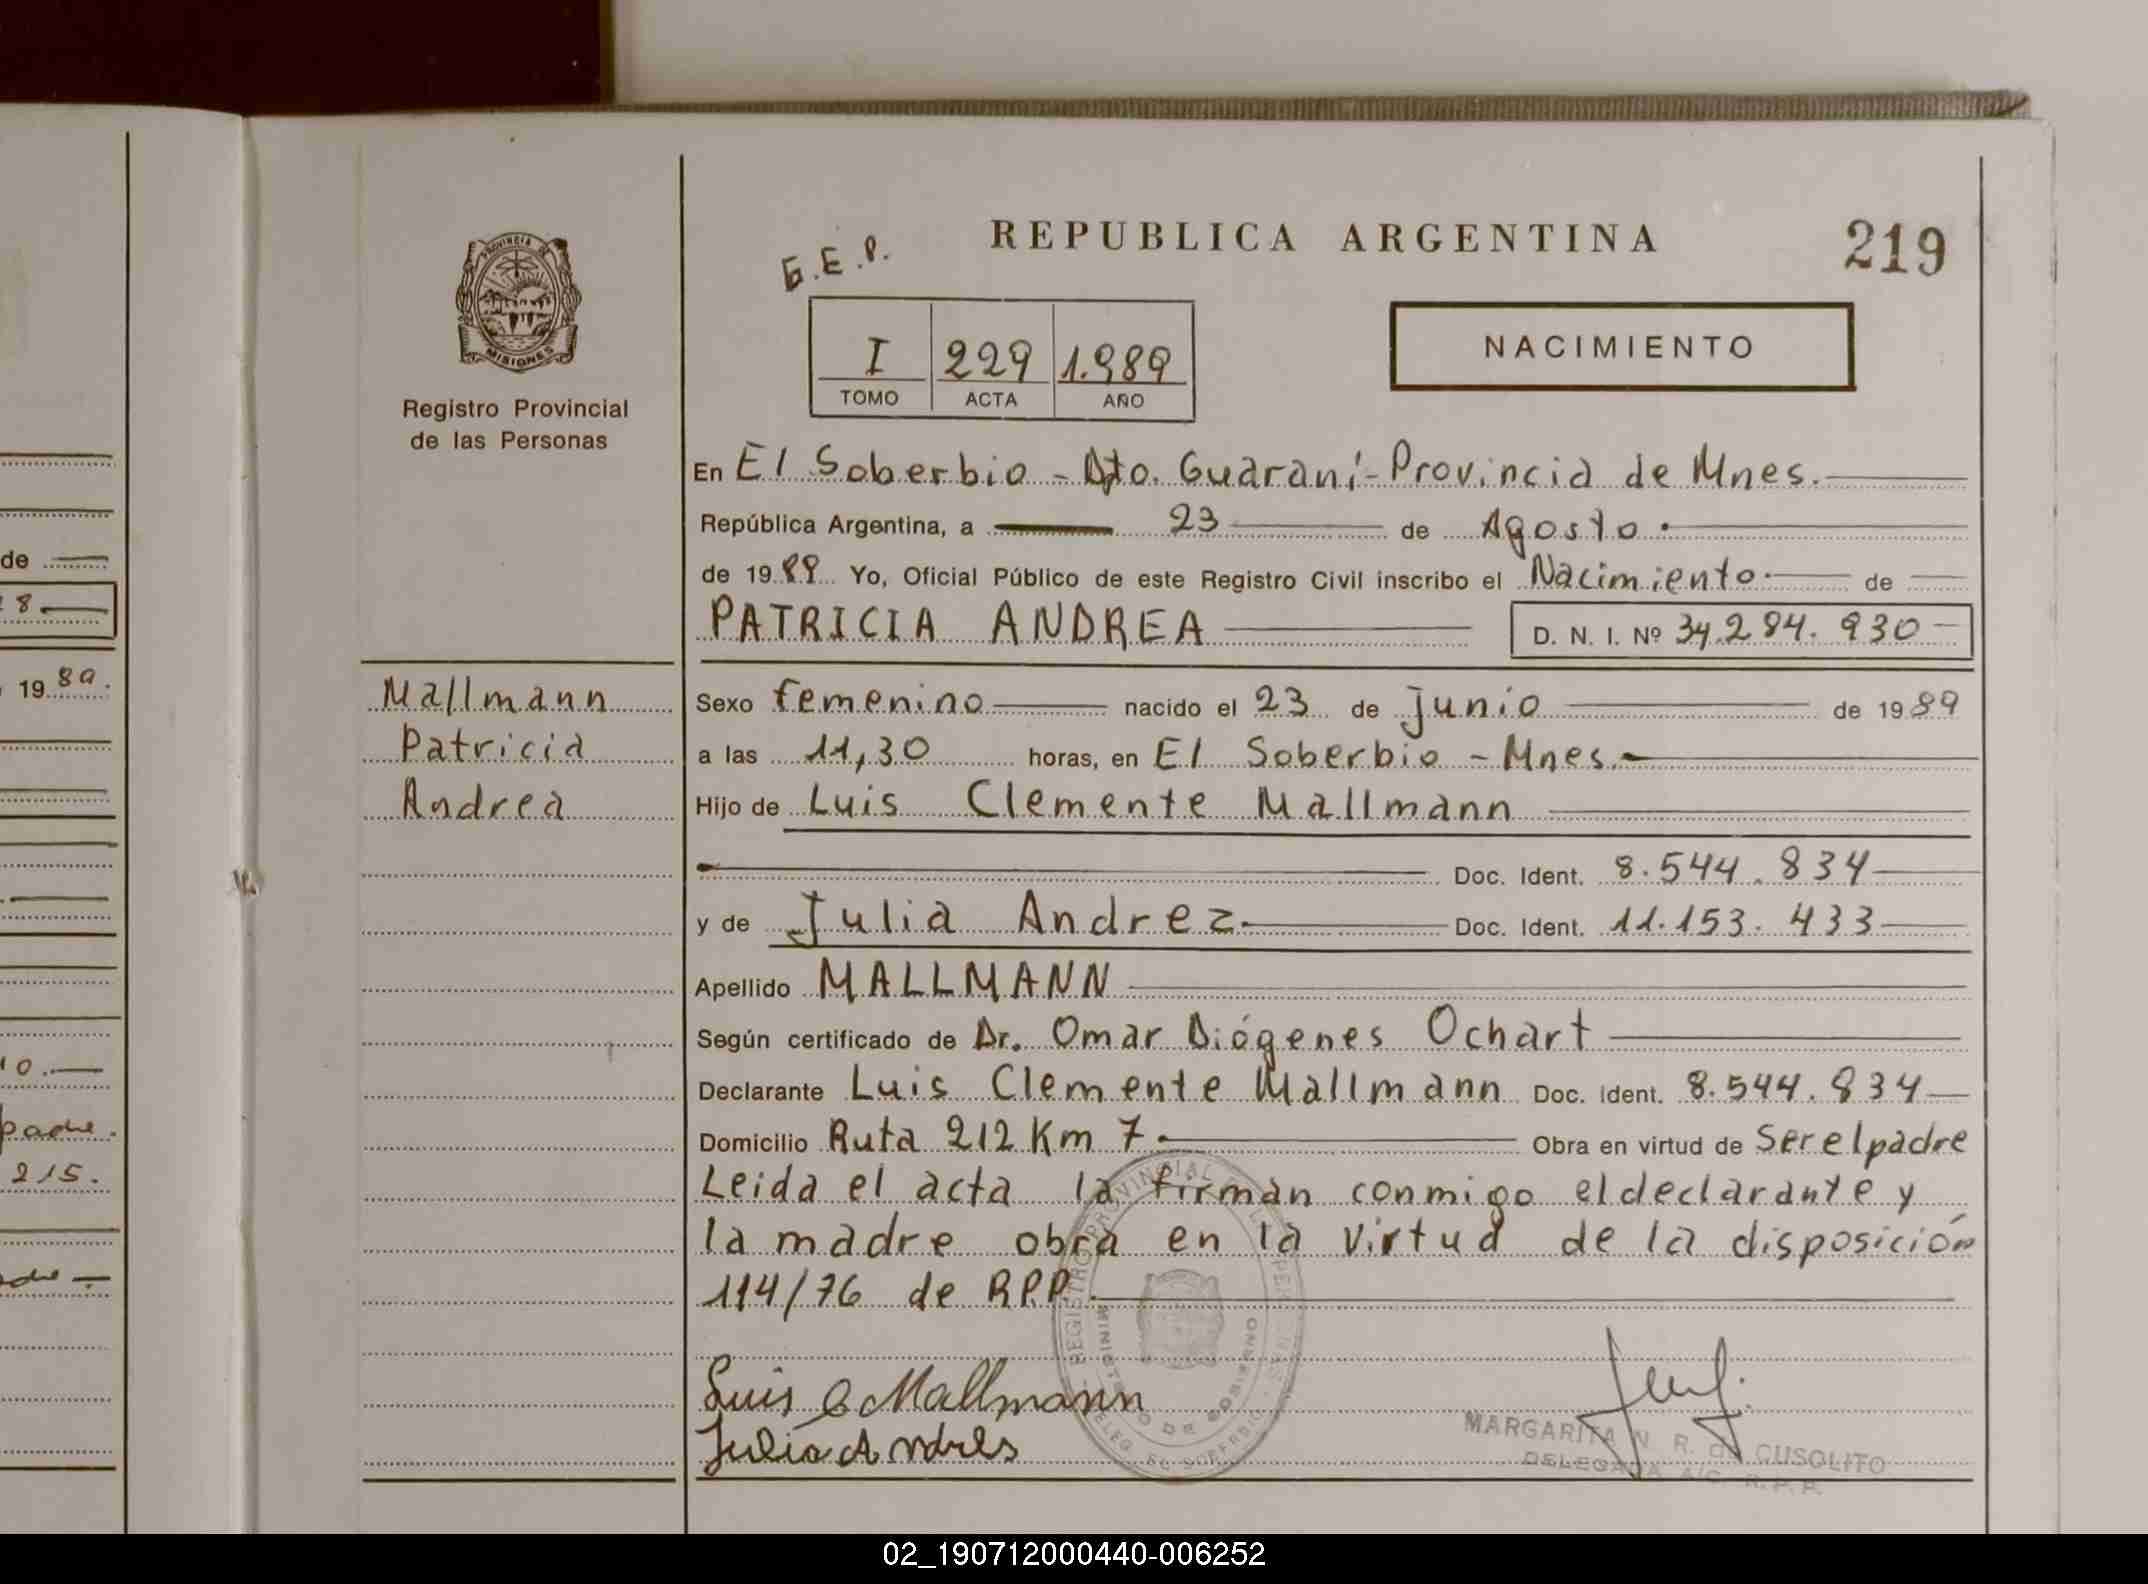 PROVINCIA DE
MISIONES
Registro Provincial
de las Personas
G.E.P.
REPUBLICA ARGENTINA
219
I 229 1.989
TOMO ACTA AÑO
NACIMIENTO
En El Soberbio - Dto. Guaraní - Provincia de Mnes.
República Argentina, a 23 de Agosto.
de 1989 Yo, Oficial Público de este Registro Civil inscribo el Nacimiento. de
PATRICIA ANDREA D. N. I. Nº 34.284.930
Mallmann
Patricia
Andrea
Sexo femenino nacido el 23 de junio de 1989
a las 11,30 horas, en El Soberbio - Mnes.
Hijo de Luis Clemente Mallmann
Doc. Ident. 8.544.834
y de Julia Andrez. Doc. Ident. 11.153.433
Apellido MALLMANN
Según certificado de Dr. Omar Diógenes Ochart
Declarante Luis Clemente Mallmann Doc. Ident. 8.544.834
Domicilio Ruta 212 Km 7. Obra en virtud de Ser el padre
Leida el acta la firman conmigo el declarante y
la madre obra en la virtud de la disposición
114/76 de R.P.P.
Luis C Mallmann
Julia Andres
MARGARITA N. R. de CUSOLITO
DELEGADA A/C. R. P. P.
de
28.
1989.
10.
padre.
215.
02_190712000440-006252